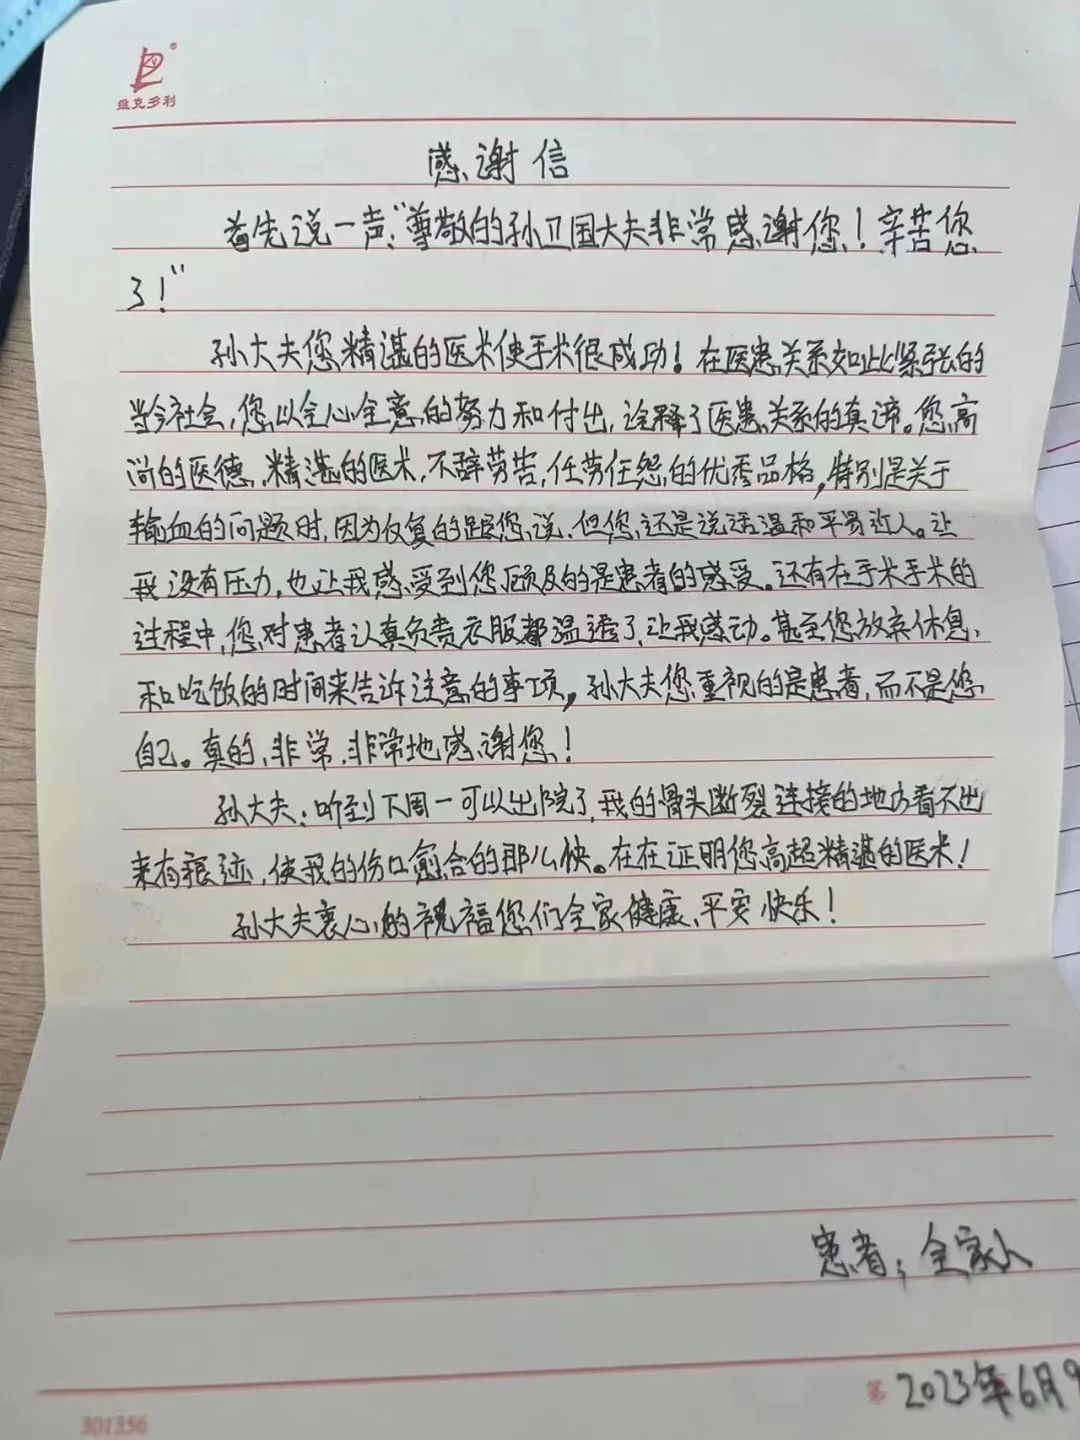 维克多利
感谢信
首先说一声:“尊敬的孙卫国大夫非常感谢您!辛苦您
了!”
孙大夫您精湛的医术使手术很成功!在医患关系如此紧张的
当今社会,您以全心全意的努力和付出,诠释了医患关系的真谛。您高
尚的医德,精湛的医术,不辞劳苦,任劳任怨的优秀品格,特别是关于
输血的问题时,因为反复的跟您说,但您还是说话温和平易近人。让
我没有压力,也让我感受到您顾及的是患者的感受。还有在手术手术的
过程中,您对患者认真负责衣服都湿透了,让我感动。甚至您放弃休息、
和吃饭的时间来告诉注意的事项,孙大夫您重视的是患者,而不是您
自己。真的,非常,非常地感谢您!
孙大夫:听到下周一可以出院了,我的骨头断裂连接的地方看不出
来有痕迹,使我的伤口愈合的那么快。在在证明您高超精湛的医术!
孙大夫衷心的祝福您们全家健康、平安快乐!
患者;全家人
第 2023年6月9
301356